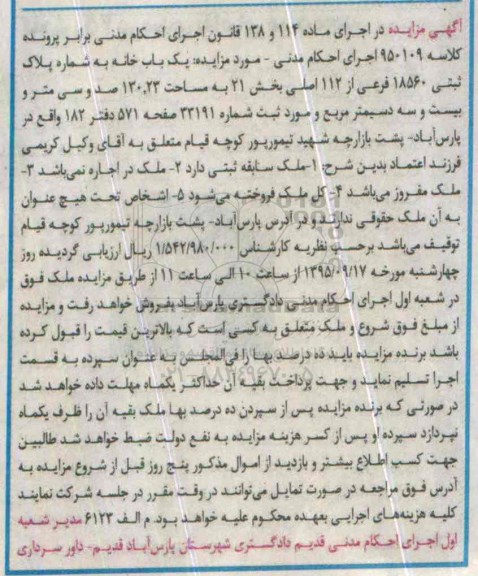 آگهی مزایده در اجرای ماده ۱۱۴ و ۱۳۸ قانون اجرای احکام مدنی برابر پرونده
کلاسه ۹۵۰۱۰۹ اجرای احکام مدنی - مورد مزایده: یک باب خانه به شماره پلاک
ثبتی ۱۸۵۶۰ فرعی از ۱۱۲ اصلی بخش ۲۱ به مساحت ۱۳۰,۲۳ صد و سی متر و
بیست و سه دسیمتر مربع و مورد ثبت شماره ۳۳۱۹۱ صفحه ۵۷۱ دفتر ۱۸۲ واقع در
پارس‌آباد- پشت بازارچه شهید تیمورپور کوچه قیام متعلق به آقای وکیل کریمی
فرزند اعتماد بدین شرح: ۱-ملک سابقه ثبتی دارد ۲- ملک در اجاره نمی‌باشد ۳-
ملک مفروز می‌باشد ۴- کل ملک فروخته می‌شود ۵- اشخاص تحت هیچ عنوان
به آن ملک حقوقی ندارند و در آدرس پارس‌آباد- پشت بازارچه تیمورپور کوچه قیام
توقیف می‌باشد برحسب نظریه کارشناس ۱/۵۴۲/۹۸۰/۰۰۰ ریال ارزیابی گردیده روز
چهارشنبه مورخه ۱۳۹۵/۰۹/۱۷ از ساعت ۱۰ الی ساعت ۱۱ از طریق مزایده ملک فوق
در شعبه اول اجرای احکام مدنی دادگستری پارس‌آباد بفروش خواهد رفت و مزایده
از مبلغ فوق شروع و ملک متعلق به کسی است که بالاترین قیمت را قبول کرده
باشد برنده مزایده باید ده درصد بها را فی‌المجلس به عنوان سپرده به قسمت
اجرا تسلیم نماید و جهت پرداخت بقیه آن حداکثر یکماه مهلت داده خواهد شد
در صورتی که برنده مزایده پس از سپردن ده درصد بها ملک بقیه آن را ظرف یکماه
نپردازد سپرده او پس از کسر هزینه مزایده به نفع دولت ضبط خواهد شد طالبین
جهت کسب اطلاع بیشتر و بازدید از اموال مذکور پنج روز قبل از شروع مزایده به
آدرس فوق مراجعه در صورت تمایل می‌توانند در وقت مقرر در جلسه شرکت نمایند
کلیه هزینه‌های اجرایی بعهده محکوم علیه خواهد بود. م الف ۶۱۲۳ مدیر شعبه
اول اجرای احکام مدنی قدیم دادگستری شهرستان پارس‌آباد قدیم- داور سرداری